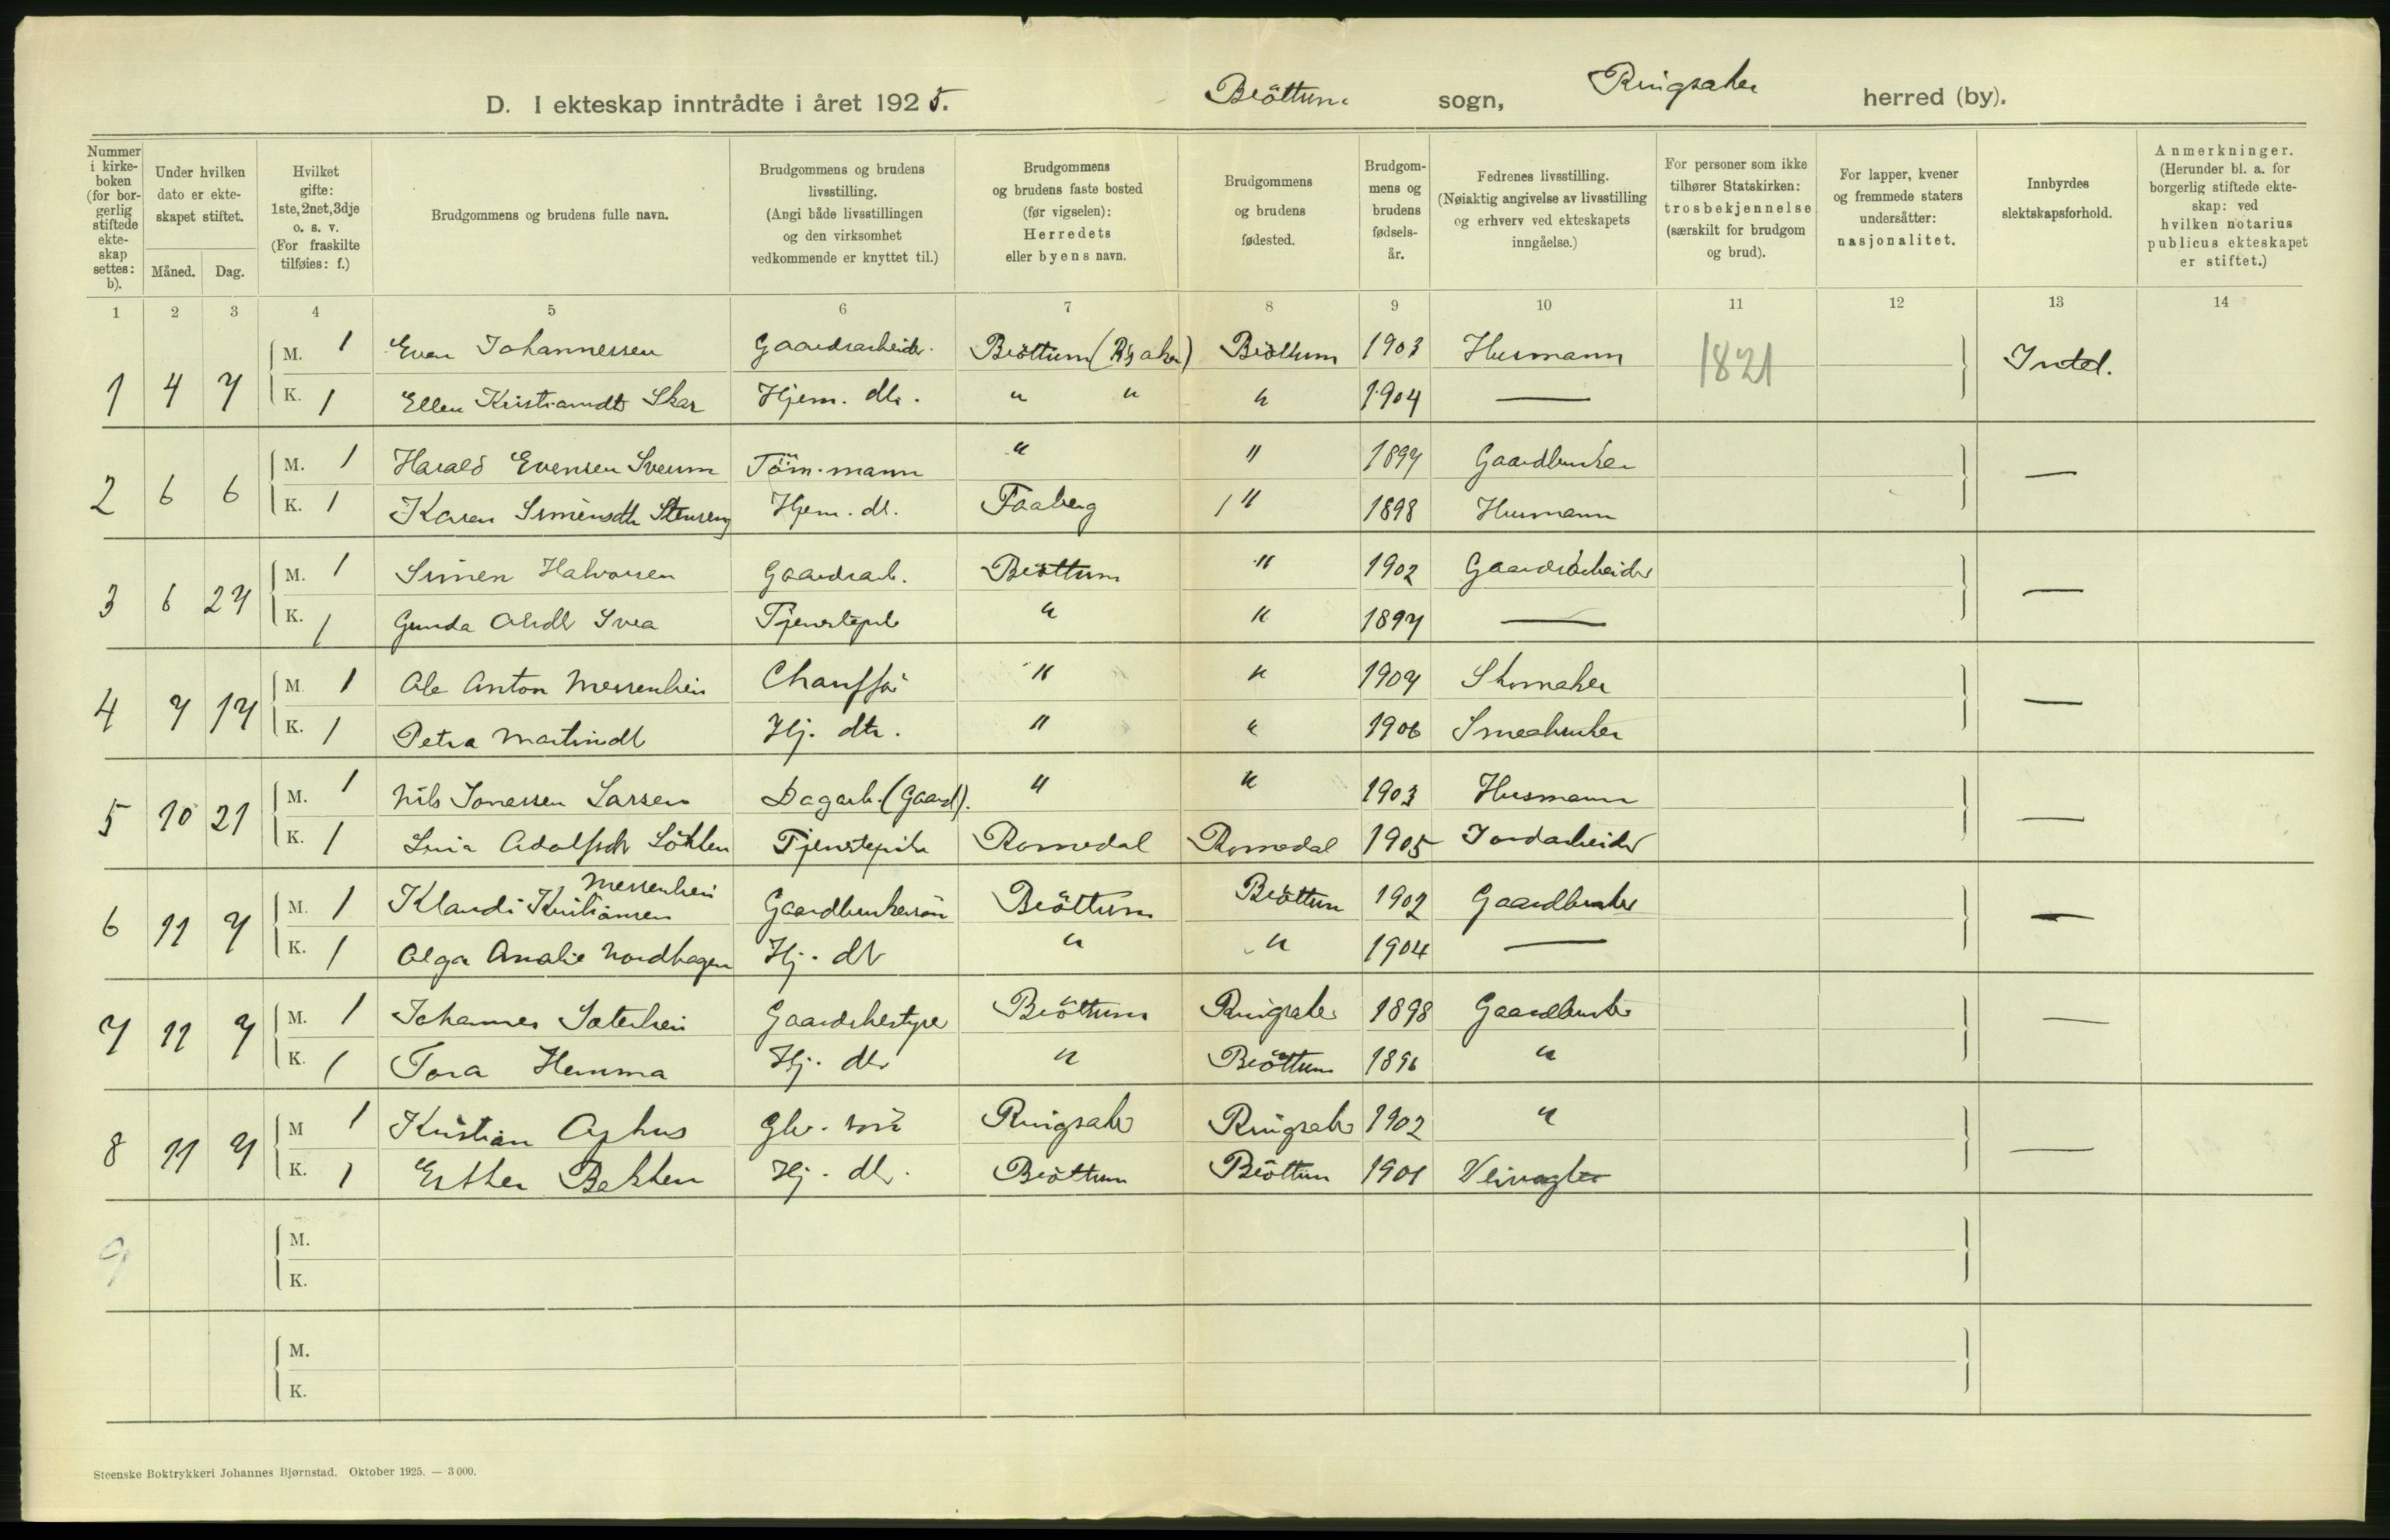 D. I ekteskap inntrådte i året 1925. Brøttum sogn, Ringsaker herred (by).
Nummer i kirkeboken (for borgerlig stiftede ekteskap settes: b).
Under hvilken dato er ekteskapet stiftet.
Måned. Dag.
Hvilket gifte: 1ste, 2net, 3dje o. s. v. (For fraskilte tilføies: f.)
Brudgommens og brudens fulle navn.
Brudgommens og brudens livsstilling. (Angi både livsstillingen og den virksomhet vedkommende er knyttet til.)
Brudgommens og brudens faste bosted (før vigselen): Herredets eller byens navn.
Brudgommens og brudens fødested.
Brudgommens og brudens fødselsår.
Fedrenes livsstilling. (Nøiaktig angivelse av livsstilling og erhverv ved ekteskapets inngåelse.)
For personer som ikke tilhører Statskirken: trosbekjennelse (særskilt for brudgom og brud).
For lapper, kvener og fremmede staters undersåtter: nasjonalitet.
Innbyrdes slektskapsforhold.
Anmerkninger. (Herunder bl. a. for borgerlig stiftede ekteskap: ved hvilken notarius publicus ekteskapet er stiftet.)
1 2 3 4 5 6 7 8 9 10 11 12 13 14
M. 1 Even Johannessen Gaardsarbeider. Brøttum (R'saker) Brøttum 1903 Husmann 1821 Intet.
1 4 7 K. 1 Ellen Kristiansdtr Skar Hjem. dtr. " " " 1904 —
M. 1 Harald Evensen Sveum Tøm.mann " " 1897 Gaardbruker —
2 6 6 K. 1 Karen Simensdtr Stenseng Hjem. dt. Faaberg " 1898 Husmann
M. 1 Simen Halvorsen Gaardsarb. Brøttum " 1902 Gaardsarbeider —
3 6 27 K. 1 Gunda Olsdtr Svea Tjenestepike " " 1897 —
M. 1 Ole Anton Messenlien Chauffør " " 1907 Skomaker —
4 7 17 K. 1 Petra Martinsdt Hj. dtr. " " 1906 Smaabruker
M. 1 Nils Jonassen Larsen Dagarb. (Gaard). " " 1903 Husmann —
5 10 21 K. 1 Adolfsdtr Løkken Tjenestepike Romedal Romedal 1905 Jordarbeider
Messenlien
M. 1 Klaudi Kristiansen Gaardbrukersøn Brøttum Brøttum 1902 Gaardbruker —
6 11 7 K. 1 Olga Amalie Nordhagen Hj. dtr " " 1904 —
M. 1 Johannes Sæterlien Gaardsbestyrer Brøttum Ringsaker 1898 Gaardbruker —
7 11 7 K. 1 Tora Hemma Hj. dtr " Brøttum 1896 "
M 1 Kristian Ophus Gbr. søn Ringsaker Ringsaker 1902 " —
8 11 7 K. 1 Esther Bakken Hj. dtr. Brøttum Brøttum 1901 Veivogter
9 M.
K.
M.
K.
Steenske Boktrykkeri Johannes Bjørnstad. Oktober 1925. — 3 000.